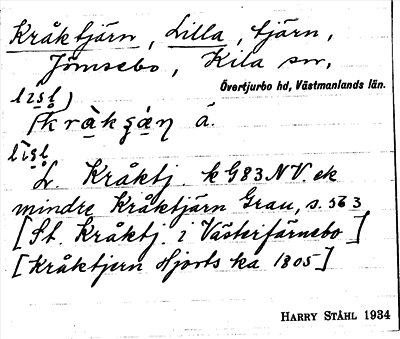 Kråktjärn, Lilla, tjärn,
Jönsebo, Kila sn,
Övertjurbo hd, Västmanlands län.
L. Kråktj. kG83NV. ek
mindre Kråktjärn Grau, s. 563
[St. Kråktj. i Västerfärnebo]
[Kråktjern Hjorts ka 1805]
HARRY STÅHL 1934